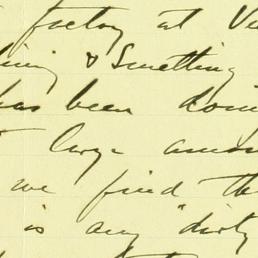 factory at
& Smelting
has been
large
we find
is any "dirty